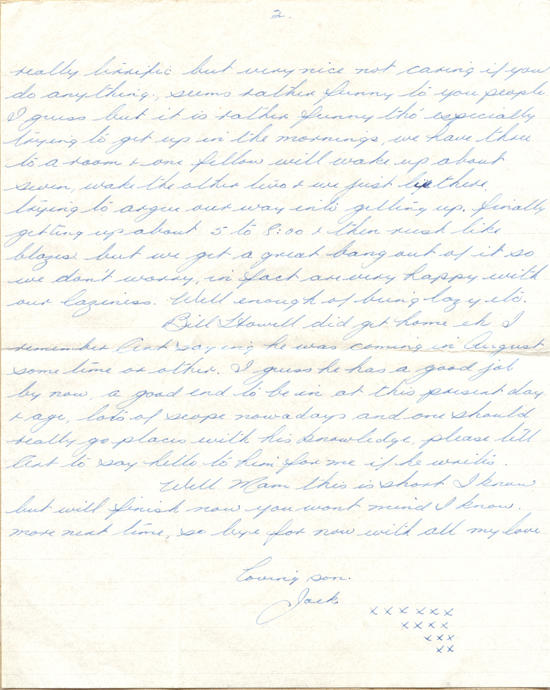 2.
really terrific but very nice not caring if you
do anything, seems rather funny to you people
I guess but it is rather funny tho especially
trying to get up in the mornings, we have three
to a room & one fellow will wake up about
seven, wake the other two & we just lie there,
trying to argue our way into getting up, finally
getting up about 5 to 8:00 & then rush like
blazes but we get a great bang out of it so
we don't worry, in fact are very happy with
our laziness. Well enough of being lazy, its.
Bill Howell did get home eh I
remember Art saying he was coming in August
some time or other. I guess he has a good job
by now, a good end to be in at this present day
& age, lots of scope nowadays and one should
really go places with his knowledge, please tell
Art to say hello to him for me if he writes.
Well Mam this is short I know
but will finish now you wont mind I know,
more next time, so bye for now with all my love
Loving son.
Jack
x x x x x x
x x x x
x x x
x x